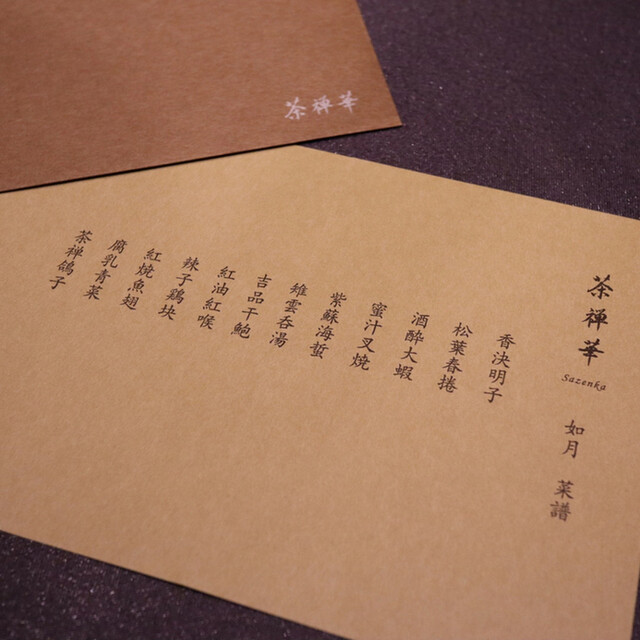 茶禅華
茶禅華
Sazenka
如月 菜譜
香決明子
松葉春捲
酒酔大蝦
蜜汁叉焼
紫蘇海蜇
雉雲呑湯
吉品干鮑
紅油紅喉
辣子鶏块
紅焼魚翅
腐乳青菜
茶禅鴿子